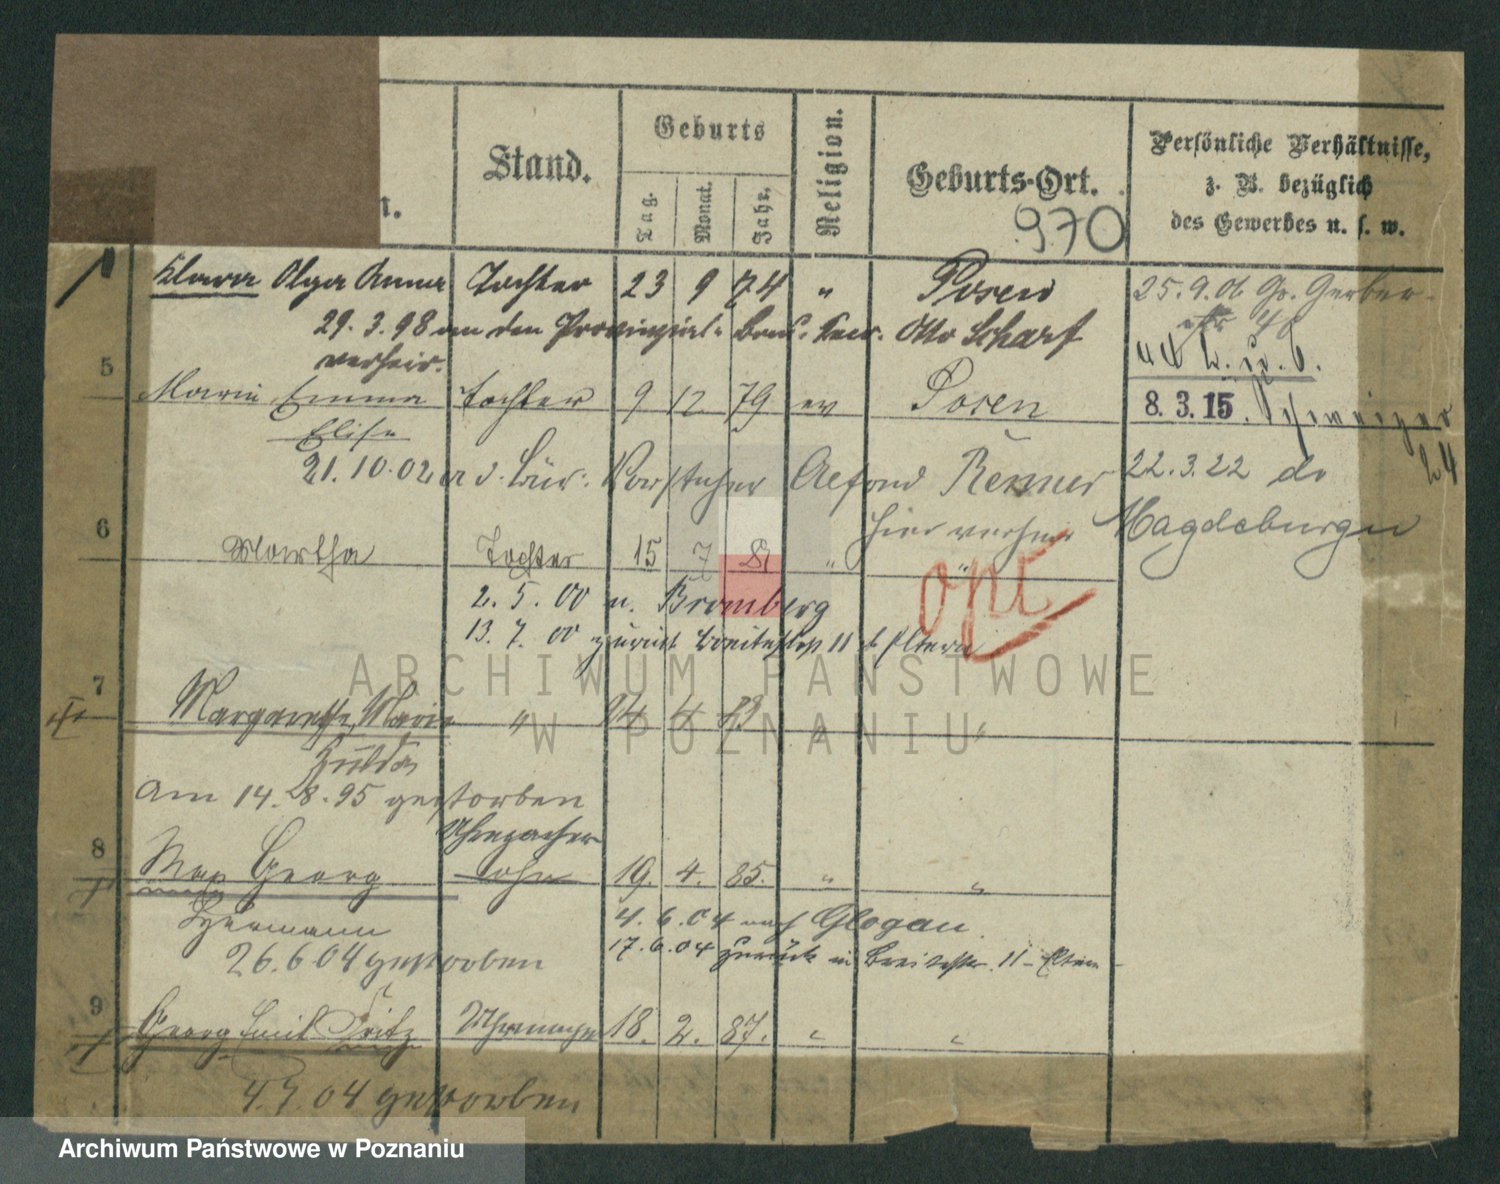 n.
Stand.
Geburts
Tag.
Monat.
Jahr.
Religion.
Geburts-Ort.
970
Persönliche Verhältnisse,
z. B. bezüglich
des Gewerbes u. s. w.
Klara Olga Anna Tochter 23 9 74 " Posen
25.9.06 Gr. Gerber-
29.3.98 an den Provinzial- Otto Scharf
verheir.
5
Marie Emma Tochter 9 12 79 ev Posen
8.3.15.
Elise
21.10.02 Vorsteher Renner
22.3.22 do
hier verheir
Magdeburg
6
Martha Tochter 15 7 " "
opt
2.5.00 n. Bromberg
13.7.00 zurück Breitestr 11 b Eltern
ARCHIWUM PAŃSTWOWE
W POZNANIU
7
Margarethe Marie " 24 4 83 " "
Hulda
Am 14.8.95 gestorben
8
Uhrmacher
Max Georg sohn 19. 4. 85. " "
Hermann
4.6.04 nach Glogau.
26.6 04 gestorben
17.6.04 zurück in Breitestr. 11 - Eltern -
9
Georg Emil Fritz Uhrmacher 18. 2. 87. " "
4.7.04 gestorben
Archiwum Państwowe w Poznaniu